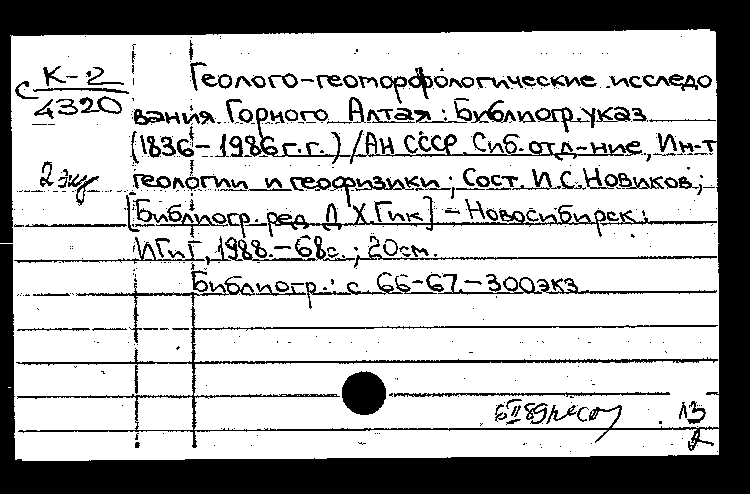 с К-2
4320
2 экз
Геолого-геоморфологические исследо
вания Горного Алтая: Библиогр. указ.
(1836-1986г.г.) / АН СССР. Сиб. отд-ние, Ин-т
геологии и геофизики; Сост. И.С. Новиков;
[Библиогр. ред. Д.Х. Гик] - Новосибирск:
ИГиГ, 1988. - 68с.; 20см.
Библиогр.: с. 66-67. - 300экз.
6 II 89
13
2